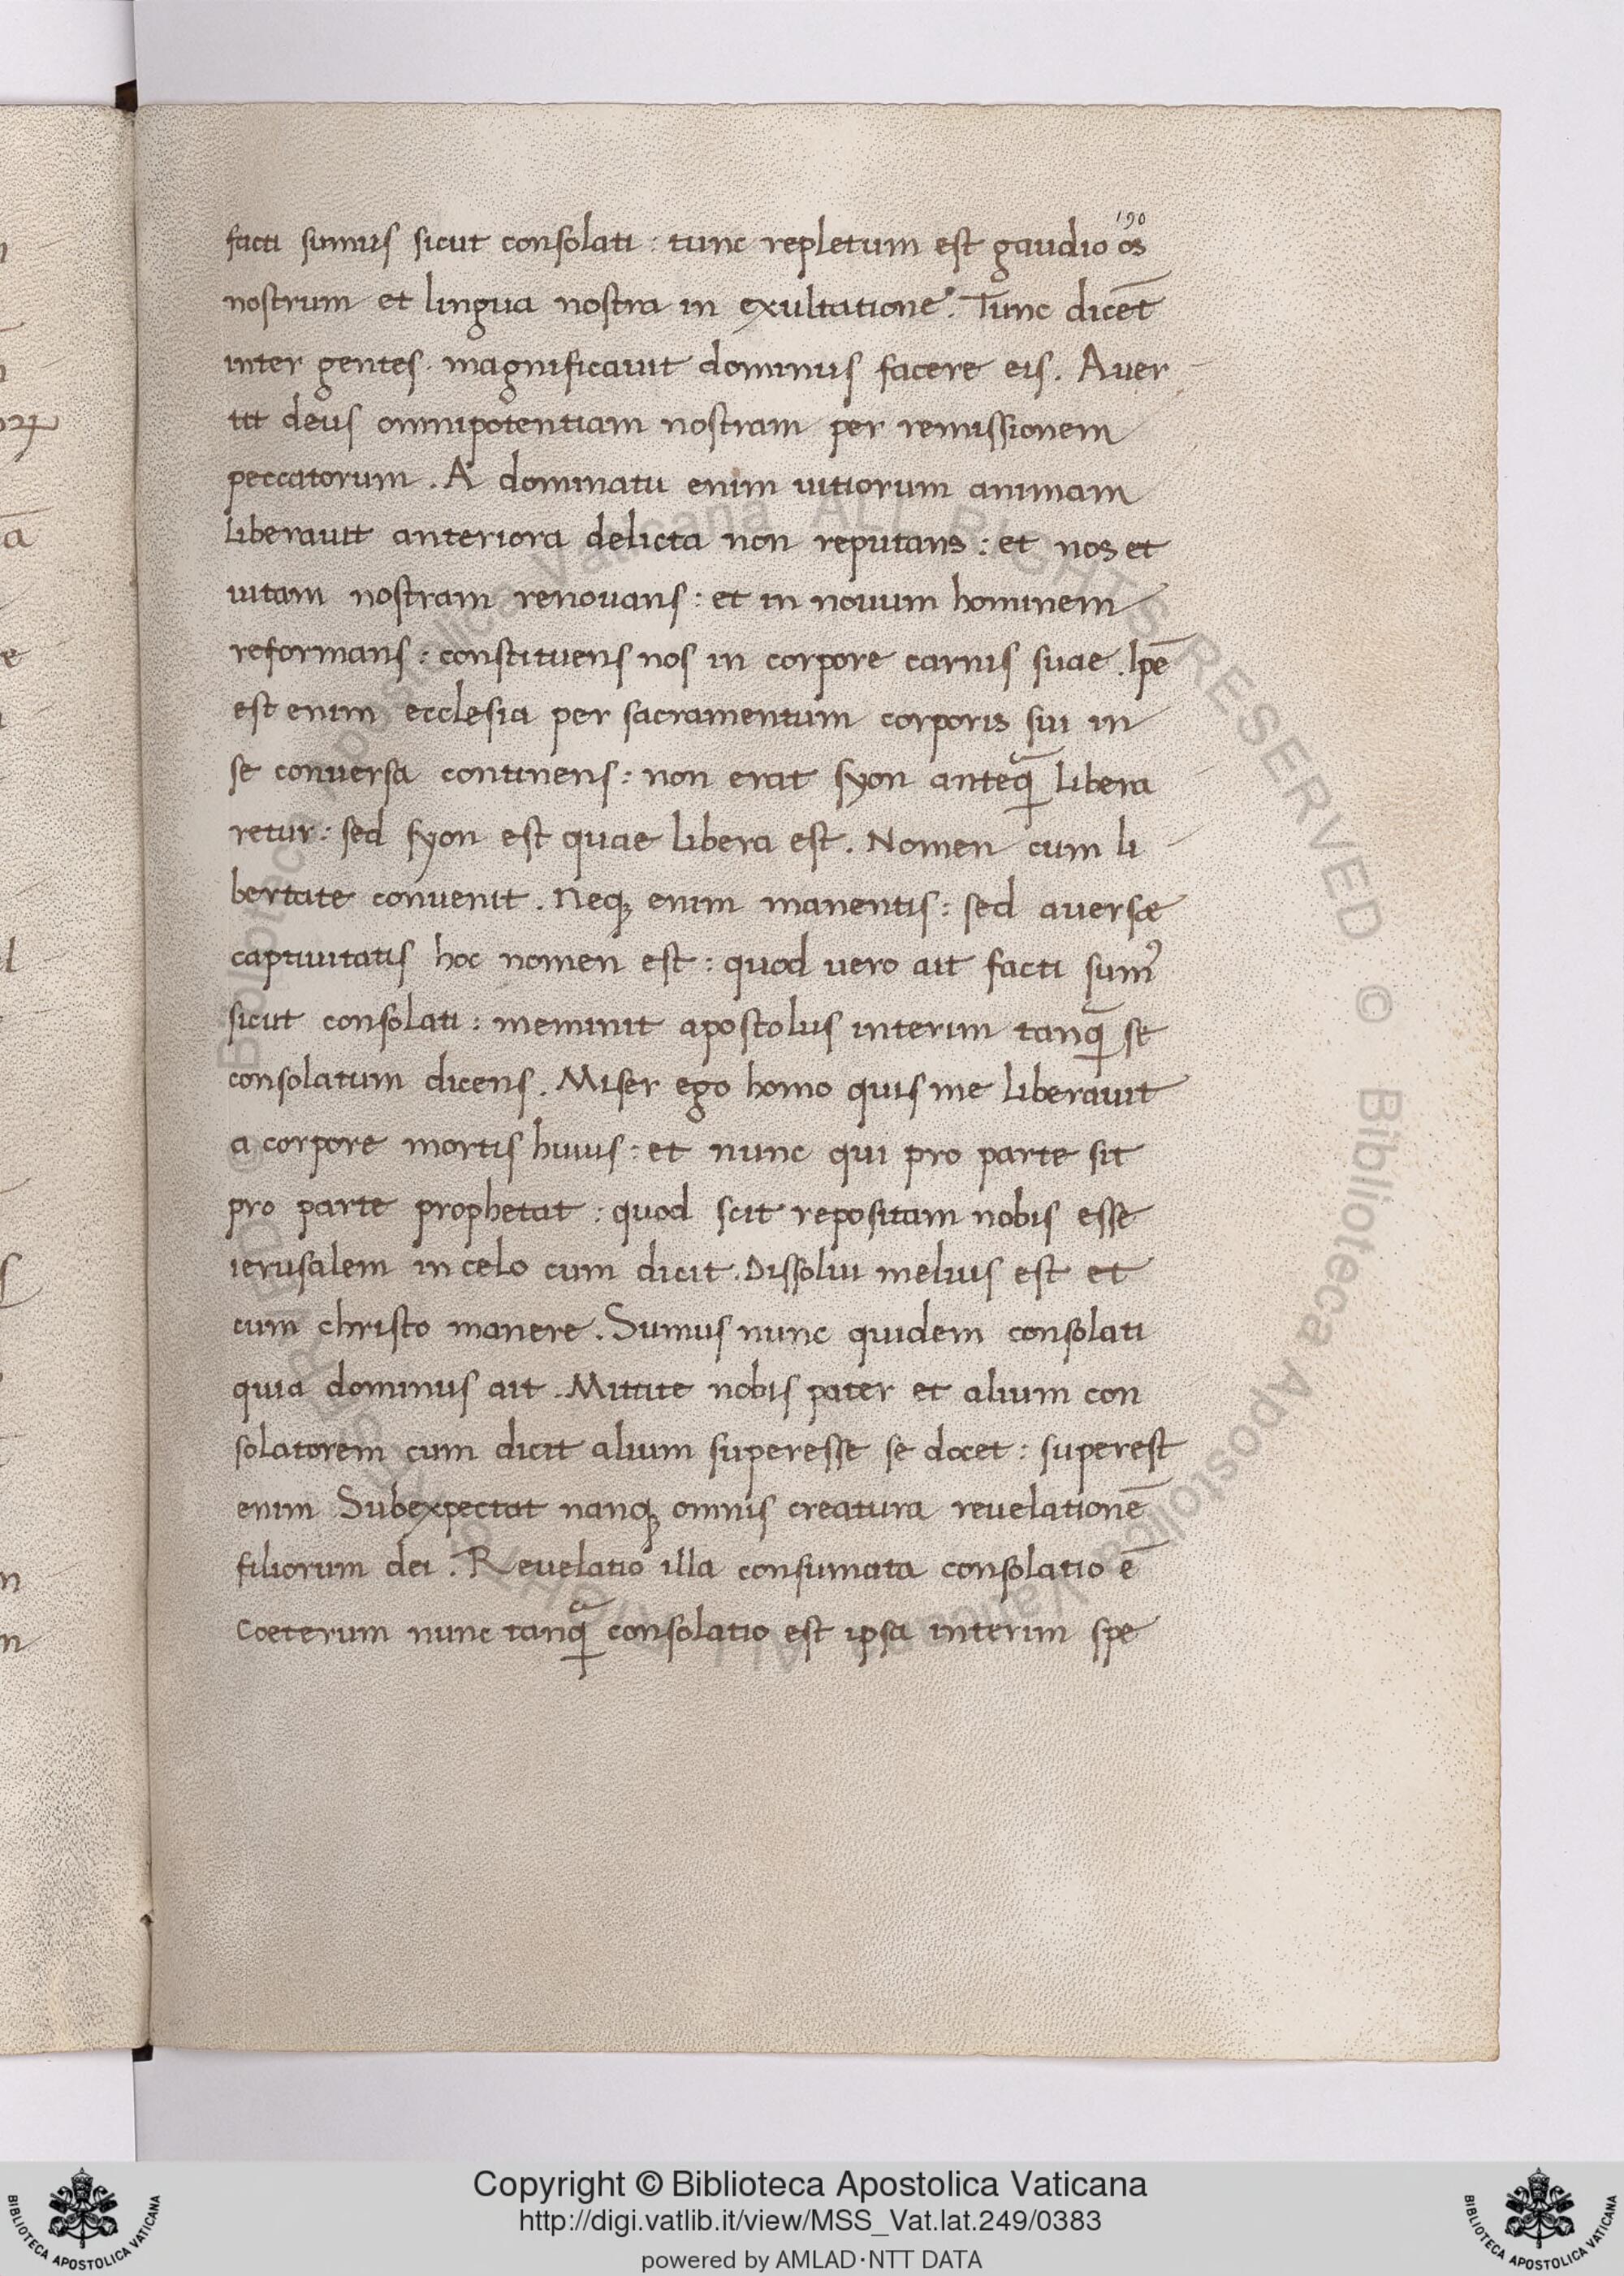 190
facti sumus sicut consolati : tunc repletum est gaudio os
nostrum et lingua nostra in exultatione. Tunc dicēt
inter gentes. magnificavit dominus facere eis. Aver
tit deus omnipotentiam nostram per remissionem
peccatorum. A dominatu enim uitiorum animam
liberauit anteriora delicta non reputans : et nos et
uitam nostram renouans : et in nouum hominem
reformans : constituens nos in corpore carnis suae. Ipē
est enim ecclesia per sacramentum corporis sui in
se conversa continens : non erat syon anteqᷓ libera
retur : sed syon est quae libera est. Nomen cum li
bertate convenit. Neqꝫ enim manentis : sed aversæ
captiuitatis hoc nomen est : quod vero ait facti sumꝰ
sicut consolati : meminit apostolus interim tanqᷓ se
consolatum dicens. Miser ego homo quis me liberauit
a corpore mortis huius : et nunc qui pro parte sit
pro parte prophetat : quod scit repositam nobis esse
ierusalem in celo cum dicit. Dissolui melius est et
cum christo manere. Sumus nunc quidem consolati
quia dominus ait. Mittite nobis pater et alium con
solatorem cum dicit alium superesse se docet : superest
enim Subexpectat nanqꝫ omnis creatura revelationē
filiorum dei. Revelatio illa consumata consolatio ē
Coeterum nunc tanqᷓ consolatio est ipsa interim spe
© Biblioteca Apostolica Vaticana ALL RIGHTS RESERVED © Biblioteca Apostolica Vaticana ALL RIGHTS RESERVED
Copyright © Biblioteca Apostolica Vaticana
http://digi.vatlib.it/view/MSS_Vat.lat.249/0383
powered by AMLAD·NTT DATA
BIBLIOTECA APOSTOLICA VATICANA
BIBLIOTECA APOSTOLICA VATICANA